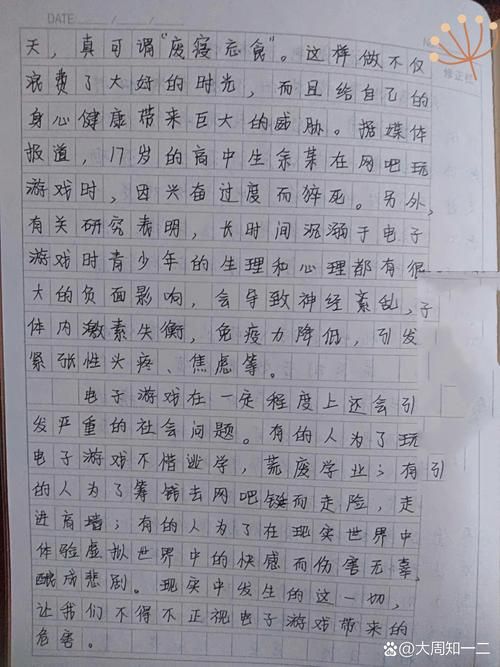 DATE
天，真可谓"废寝忘食"。这样做不仅
浪费了大好的时光，而且给自己的
身心健康带来巨大的威胁。据媒体
报道，17岁的高中生余某在网吧玩
游戏时，因兴奋过度而猝死。另外，
有关研究表明，长时间沉溺于电子
游戏时青少年的生理和心理都有很
大的负面影响，会导致神经紊乱，子
体内激素失衡，免疫力降低，引发
紧张性头疼、焦虑等。
电子游戏在一定程度上还会引
发严重的社会问题。有的人为了玩
电子游戏不惜逃学，荒废学业；有引
的人为了筹钱去网吧铤而走险，走
进高墙；有的人为了在现实世界中
体验虚拟世界中的快感而伤害无辜，
酿成悲剧。现实中发生的这一切，
让我们不得不正视电子游戏带来的
危害。
修正栏
@大周知一二